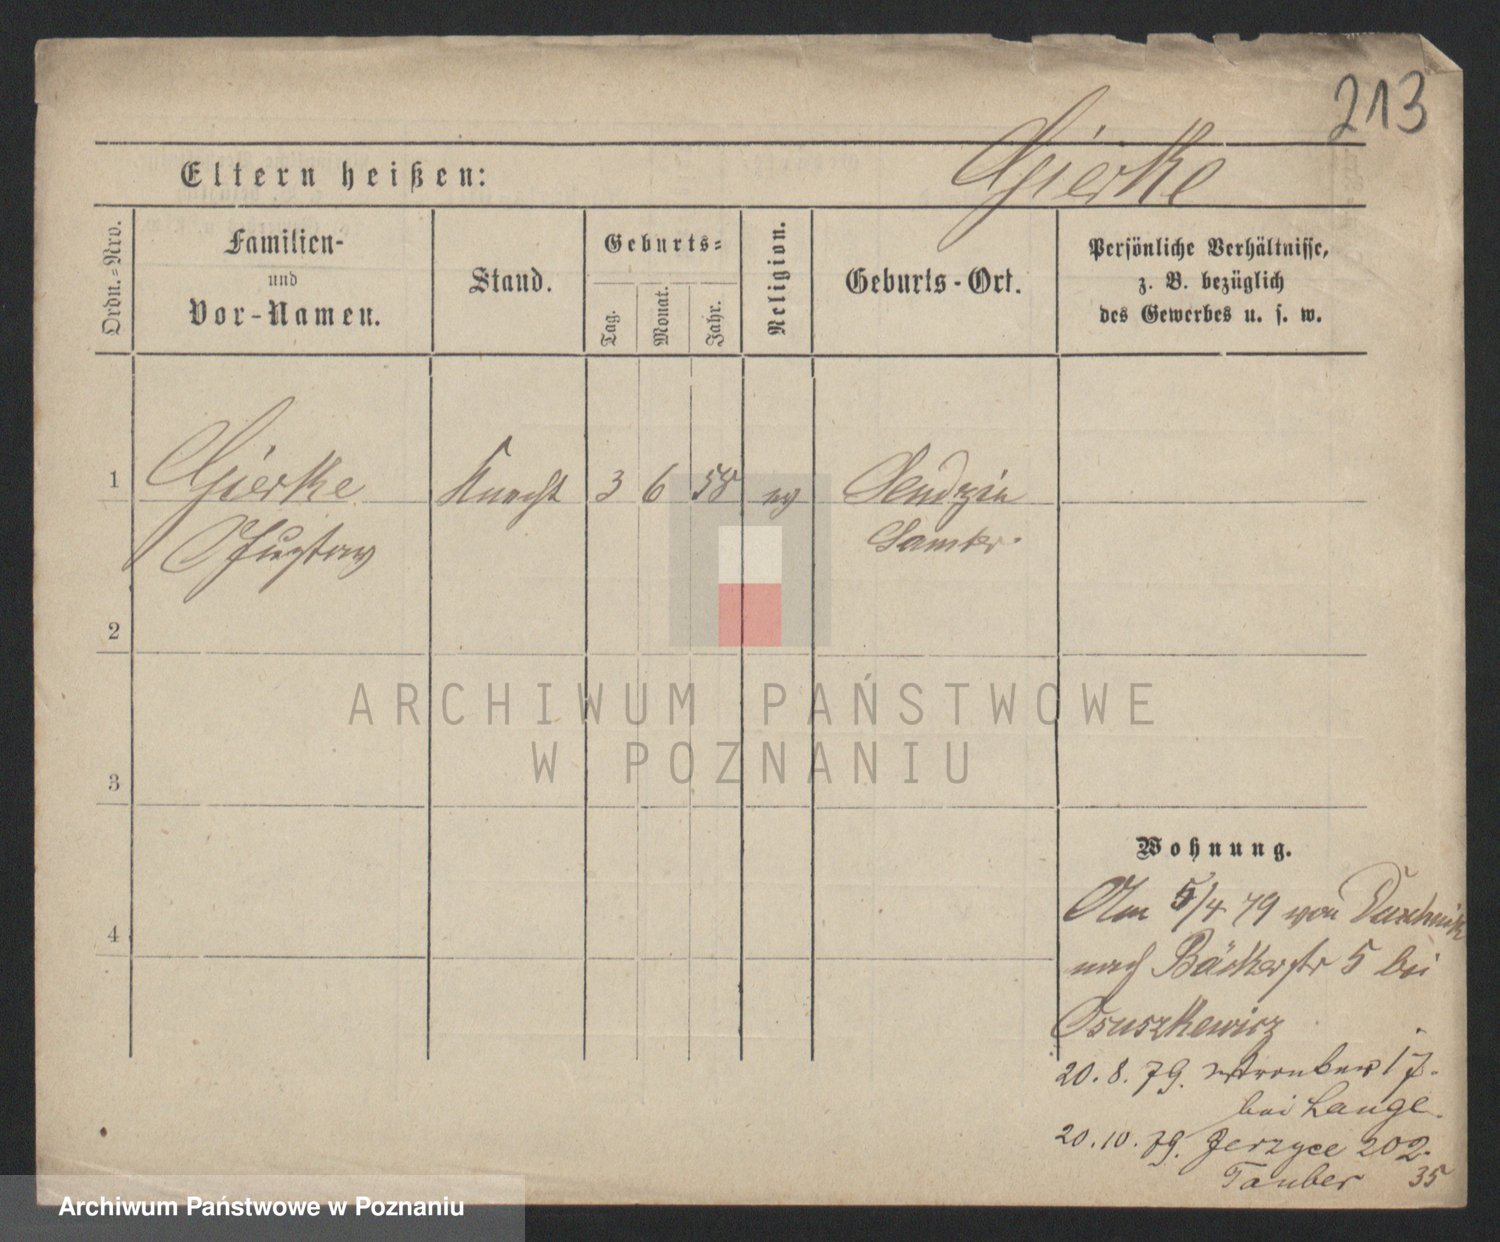 213
Gierke
Eltern heißen:
Ordn.=Nro.
Familien-
und
Vor-Namen.
Stand.
Geburts=
Tag.
Monat.
Jahr.
Religion.
Geburts-Ort.
Persönliche Verhältnisse,
z. B. bezüglich
des Gewerbes u. s. w.
1
Gierke
Gustav
Knecht
3
6
58
ev
Sendzin
Samter.
2
ARCHIWUM PAŃSTWOWE
W POZNANIU
3
Wohnung.
4
Am 5/4 79 von Duschnik
nach Bäckerstr 5 bei
Osuszkewicz
20. 8. 79. 17.
bei Lange.
20. 10. 79. Jerzyce 202.
Tauber 35
Archiwum Państwowe w Poznaniu